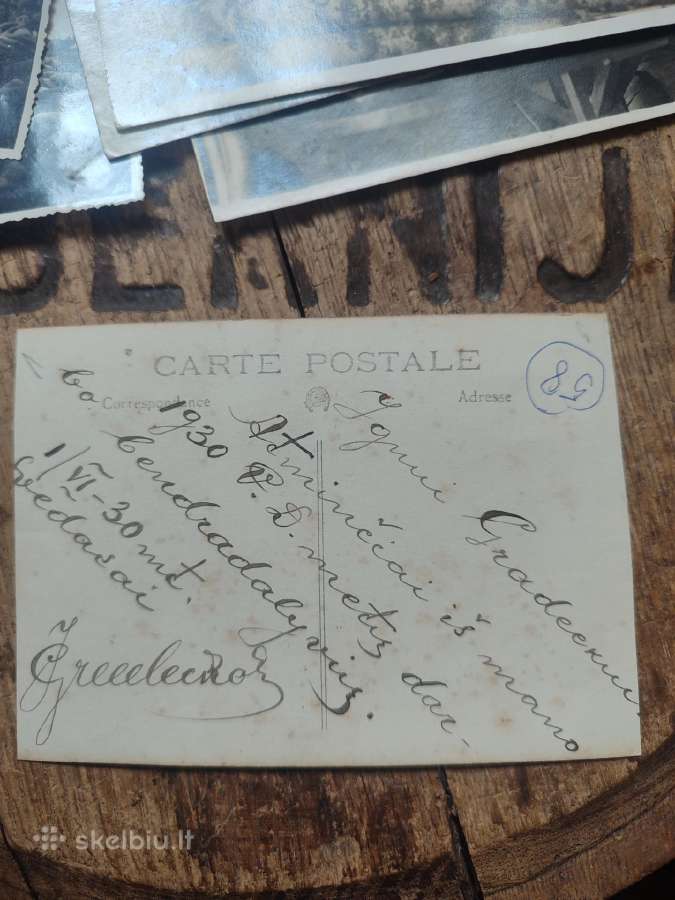 CARTE POSTALE
Correspondance
Adresse
58
Jgnui Gradeckui.
Atminčiai iš mano
1930 P. D. metų dar-
bo bendradalyviui.
1/VI-30 mt.
Svedasai
skelbiu.lt